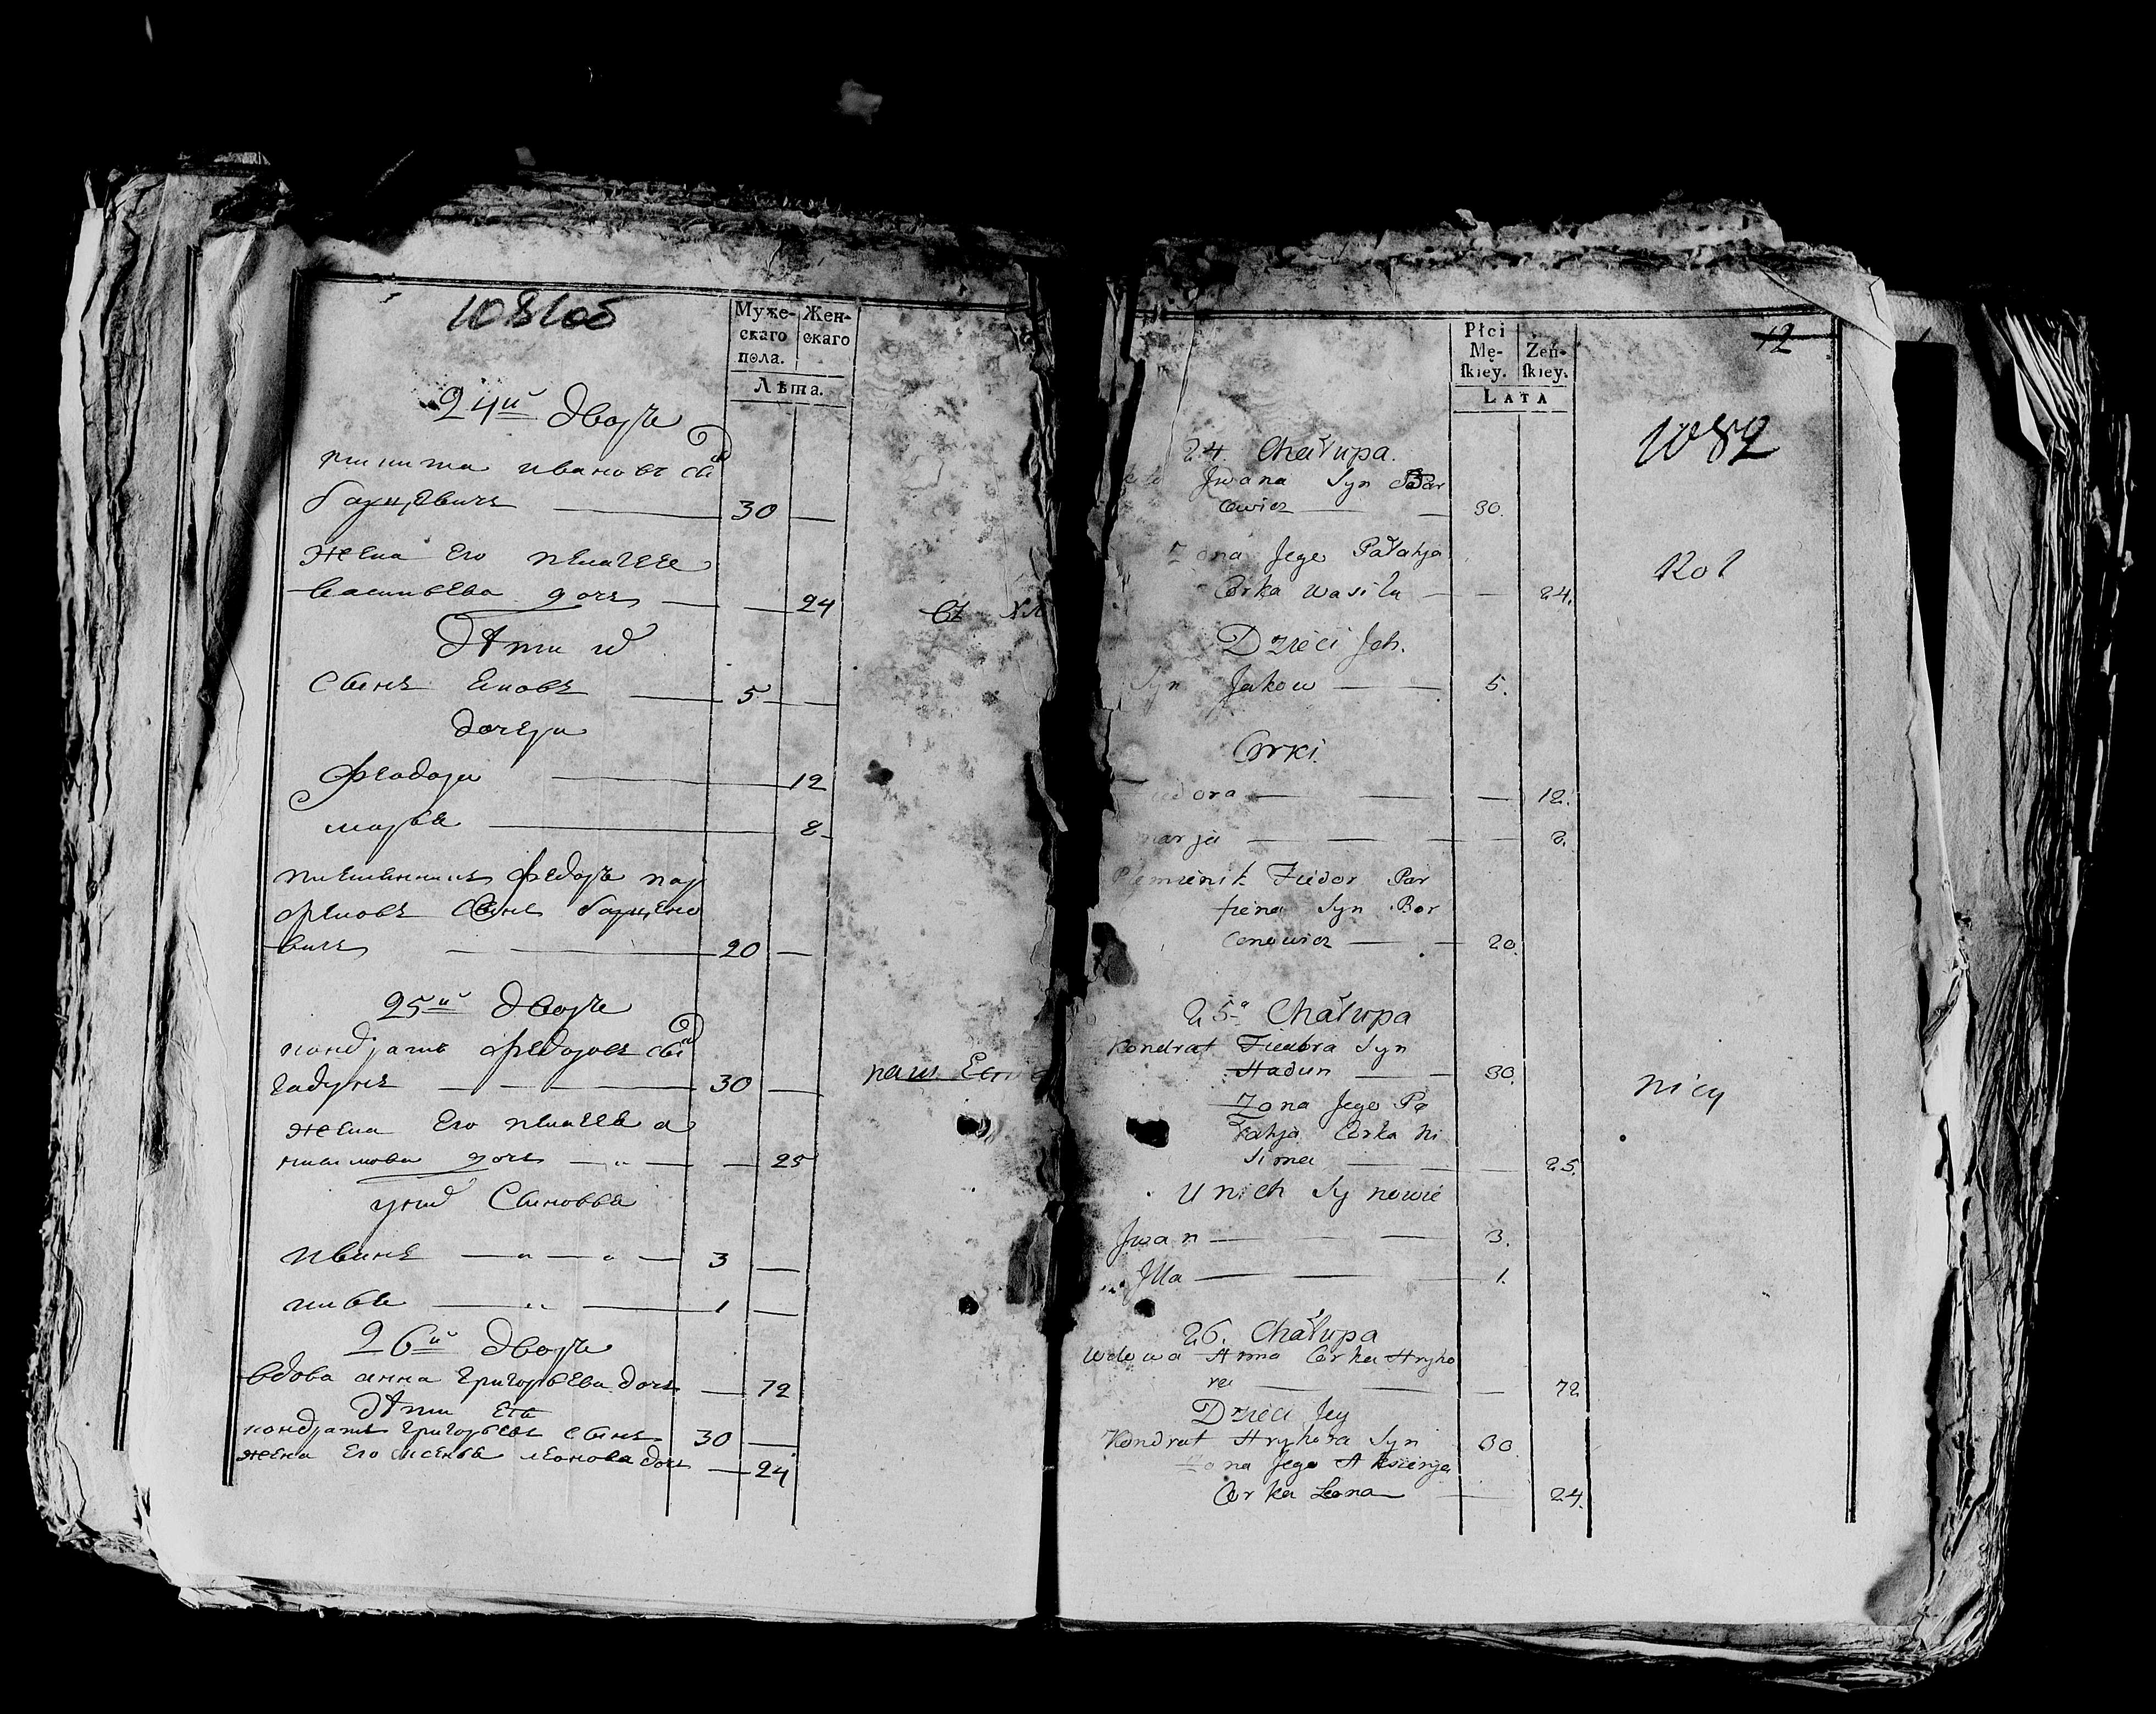 1081об
Муже- Жен-
скаго скаго
пола.
Лѣта.
24й дворъ
никита ивановъ сын
барцевичъ 30
жена его пелагея
васильева дочь 24
дѣти их
сынъ яковъ 5
дочери
феодора 12
марья 8
племянникъ федоръ пар
феновъ сынъ барцено
вичъ 20
25й дворъ
кондратъ федоровъ сын
гадунъ 30
жена его пелагея а
нисимова дочь 25
у них сыновья
иванъ 3
илья 1
26й дворъ
вдова анна григорьева дочь 72
дѣти ея
кондратъ григорьевъ сынъ 30
жена его аксинья леонова дочь 24
съ
Płci
Mę- Żeń-
skiey. skiey.
LATA
12
1082
24. Chałupa.
Jwana Syn Bar
cewicz 30.
Żona Jego Pałahja
Corka Wasila 24.
Dzieci Jch.
Syn Jakow 5.
Corki.
12.
marja 8.
Plemienik Fiedor Par
fiena Syn Bor
cenowicz 20.
25a Chałupa
Kondrat Fiedora Syn
Hadun 30.
nicy
Żona Jego Pa
łahja Corka Ni
sima 25.
U nich Synowie
Jwan 3.
Jlla 1.
26. Chałupa
Wdowa Anna Corka Hryho
ra 72
Dzieci Jey
Kondrat Hryhora Syn 30
Żona Jego Aksienja
Corka Leona 24.